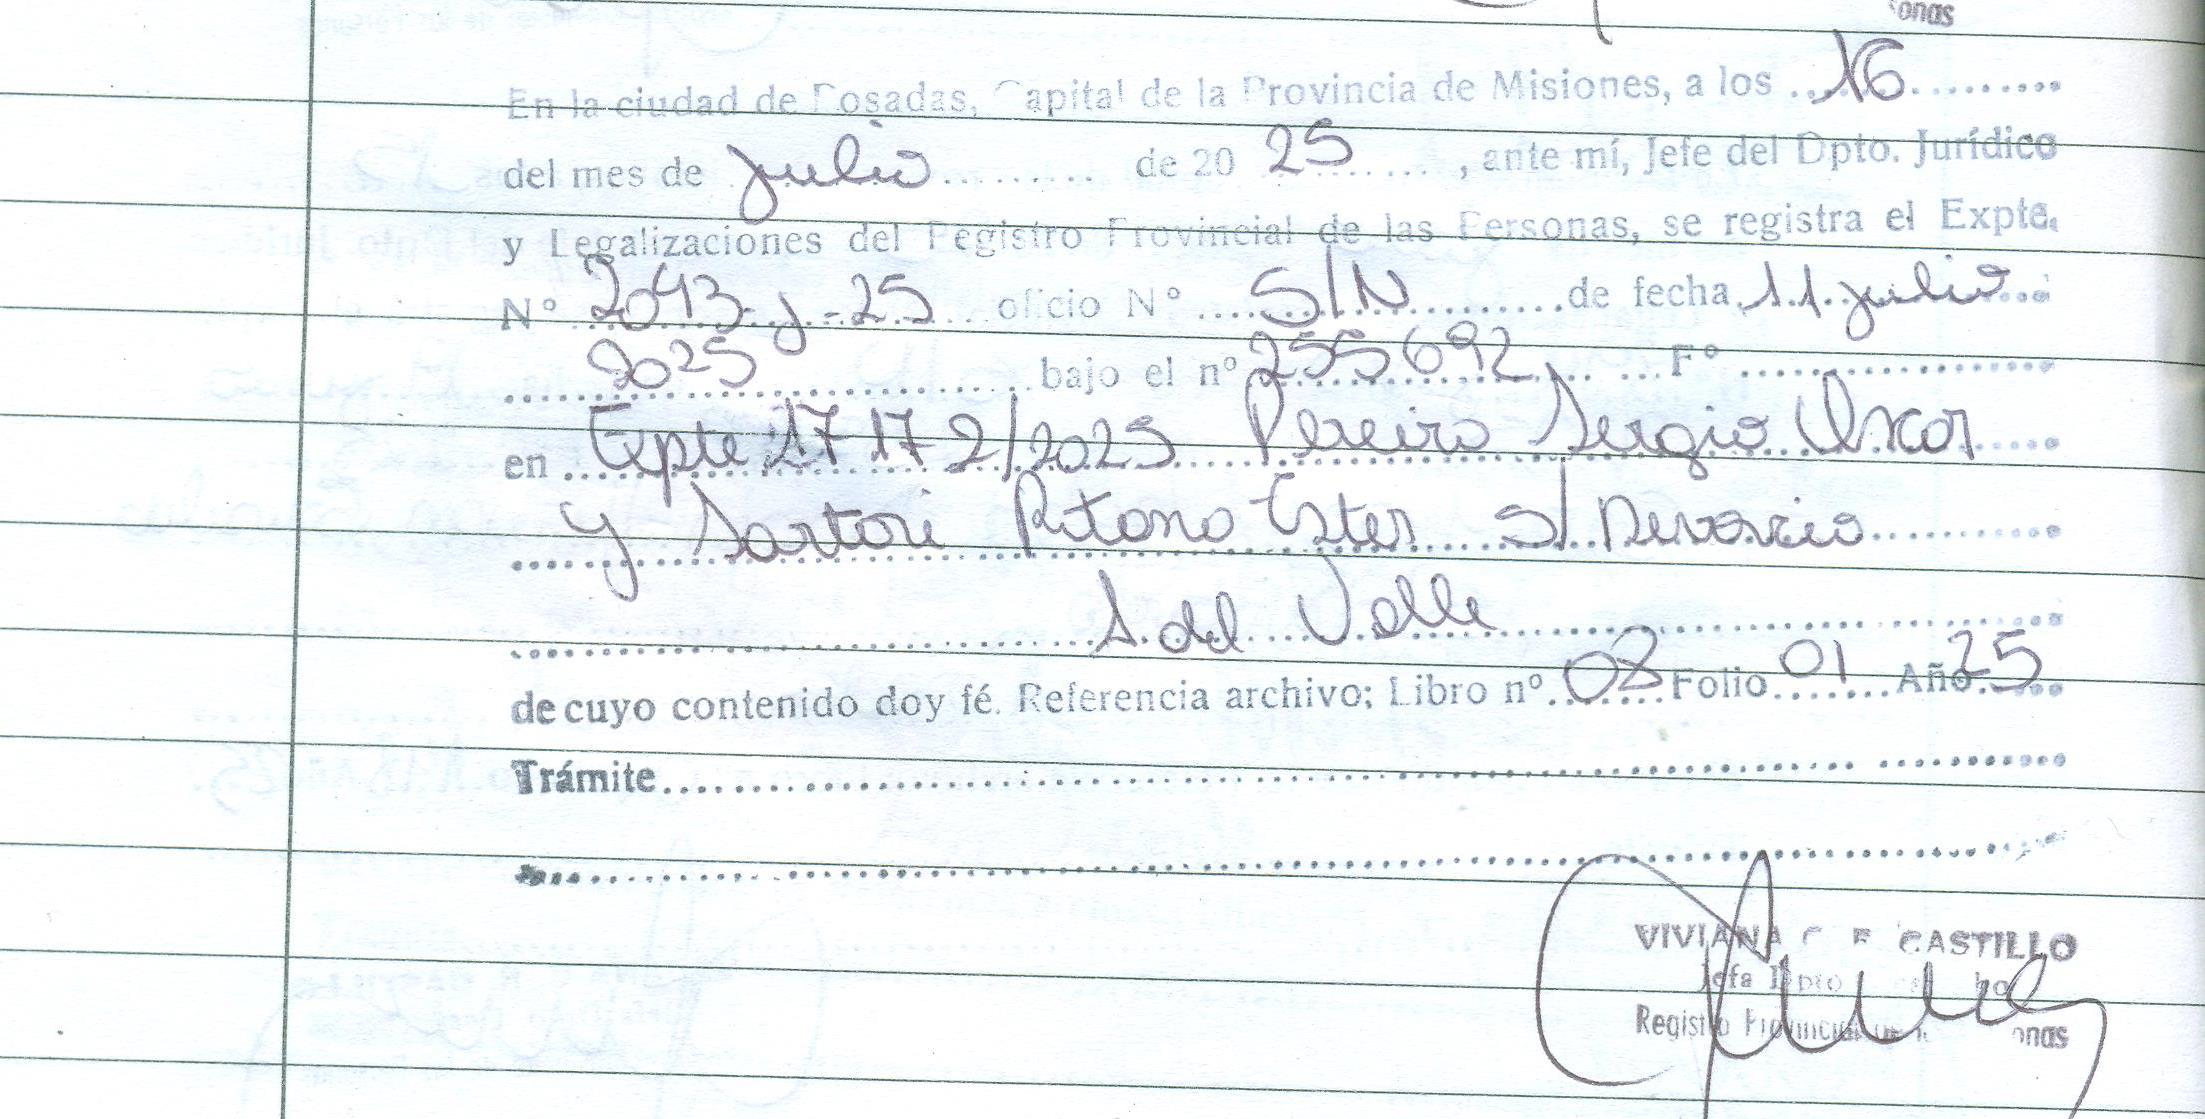 onas
En la ciudad de Posadas, Capital de la Provincia de Misiones, a los 16
del mes de julio de 20 25, ante mí, Jefe del Dpto. Jurídico
y Legalizaciones del Registro Provincial de las Personas, se registra el Expte.
N° 2043-J-25 oficio N° S/N de fecha 11 julio
2025 bajo el n° 255692 F°
en Expte 17172/2025 Pereiro Sergio Oscar
y Sartori Ester s/ Divorcio
A. del Valle
de cuyo contenido doy fé. Referencia archivo; Libro nº 08 Folio 01 Año 25
Trámite
VIVIANA CASTILLO
Jefa Dpto
Registro Provincial onas